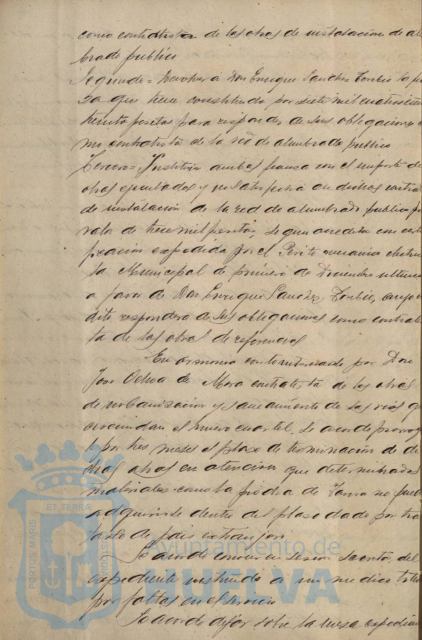 como contratista de las obras de instalacion de alum
brado publico
Segundo = Devolver a Don Enrique Sanchez Toribio la fian
za que tiene constituida por siete mil cuatrocientas
treinta pesetas para responder de sus obligaciones co
mo contratista de la red de alumbrado publico
Tercero = Sustituir ambas fianzas con el importe de
obras ejecutadas y no satisfecha al dicho contratista
de instalación de la red de alumbrado publico por
valor de tres mil pesetas, segun acredita con certi
ficacion expedida por el Perito mecanico electricis
ta Municipal de primero de Diciembre ultimo
a favor de Don Enrique Sanchez Toribio,
dito respondera de sus obligaciones como contratis
ta de las obras de referencia
En armonia con lo interesado por Don
Jose Ochoa de Mora contratista de las obras
de urbanizacion y saneamiento de las vias que
circundan el nuevo cuartel, se acordó prorrogar
le por tres meses el plazo de terminacion de di
chas obras en atencion que determinados
materiales como la piedra de no puede
adquirirse dentro del plazo dado por tra
tarse de pais extranjero
Se acordó conocer en sesion secreta, del
expediente instruido a un medico titular
por faltas en el servicio
Se acordó dejar sobre la mesa expedien
Ayuntamiento de
HUELVA
PORTUS MARIS
ET TERRAE
CUSTODIA